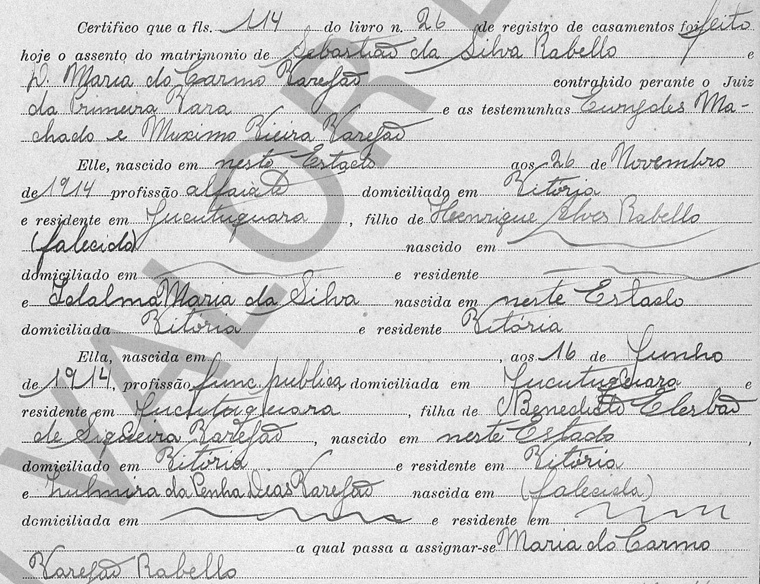 Certifico que a fls. 114 do livro n. 26 de registro de casamentos foi feito
hoje o assento do matrimonio de Sebastião da Silva Rabello e
D. Maria do Carmo Varejão contrahido perante o Juiz
da Primeira Vara e as testemunhas Eurydes Ma-
chado e Maximo Vieira Varejão
Elle, nascido em neste Estado aos 26 de Novembro
de 1914 profissão alfaiate domiciliado em Vitória
e residente em Jucutuquara, filho de Henrique Alves Rabello
(falecido) nascido em
domiciliado em e residente
e Idalma Maria da Silva nascida em neste Estado
domiciliada Vitoria e residente Vitória
Ella, nascida em , aos 16 de Junho
de 1914, profissão func. publica domiciliada em Jucutuquara e
residente em Jucutuquara, filha de Benedicto
de Siqueira Varejão, nascido em neste Estado,
domiciliado em Vitoria e residente em Vitória
e Zulmira da Penha Dias Varejão nascida em (falecida)
domiciliada em e residente em
a qual passa a assignar-se Maria do Carmo
Varejão Rabello
VALOR